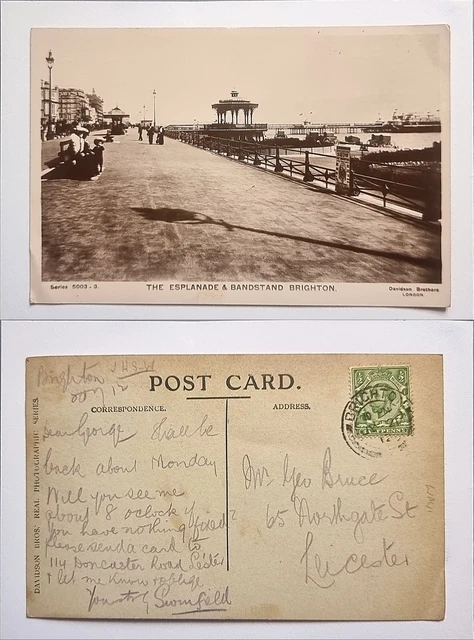 Series 5003-3.
THE ESPLANADE & BANDSTAND BRIGHTON.
Davidson Brothers
LONDON.
Brighton
POST CARD.
CORRESPONDENCE.
ADDRESS.
BRIGHTON
DAVIDSON BROS. REAL PHOTOGRAPHIC SERIES.
Dear George Shall be
back about Monday
Will you see me
about 8 oclock if
you have nothing fixed?
Please send a card to
114 Doncaster Road Lester
& let me know & oblige
Yours truly
Mr Geo Bruce
65 Northgate St
Leicester